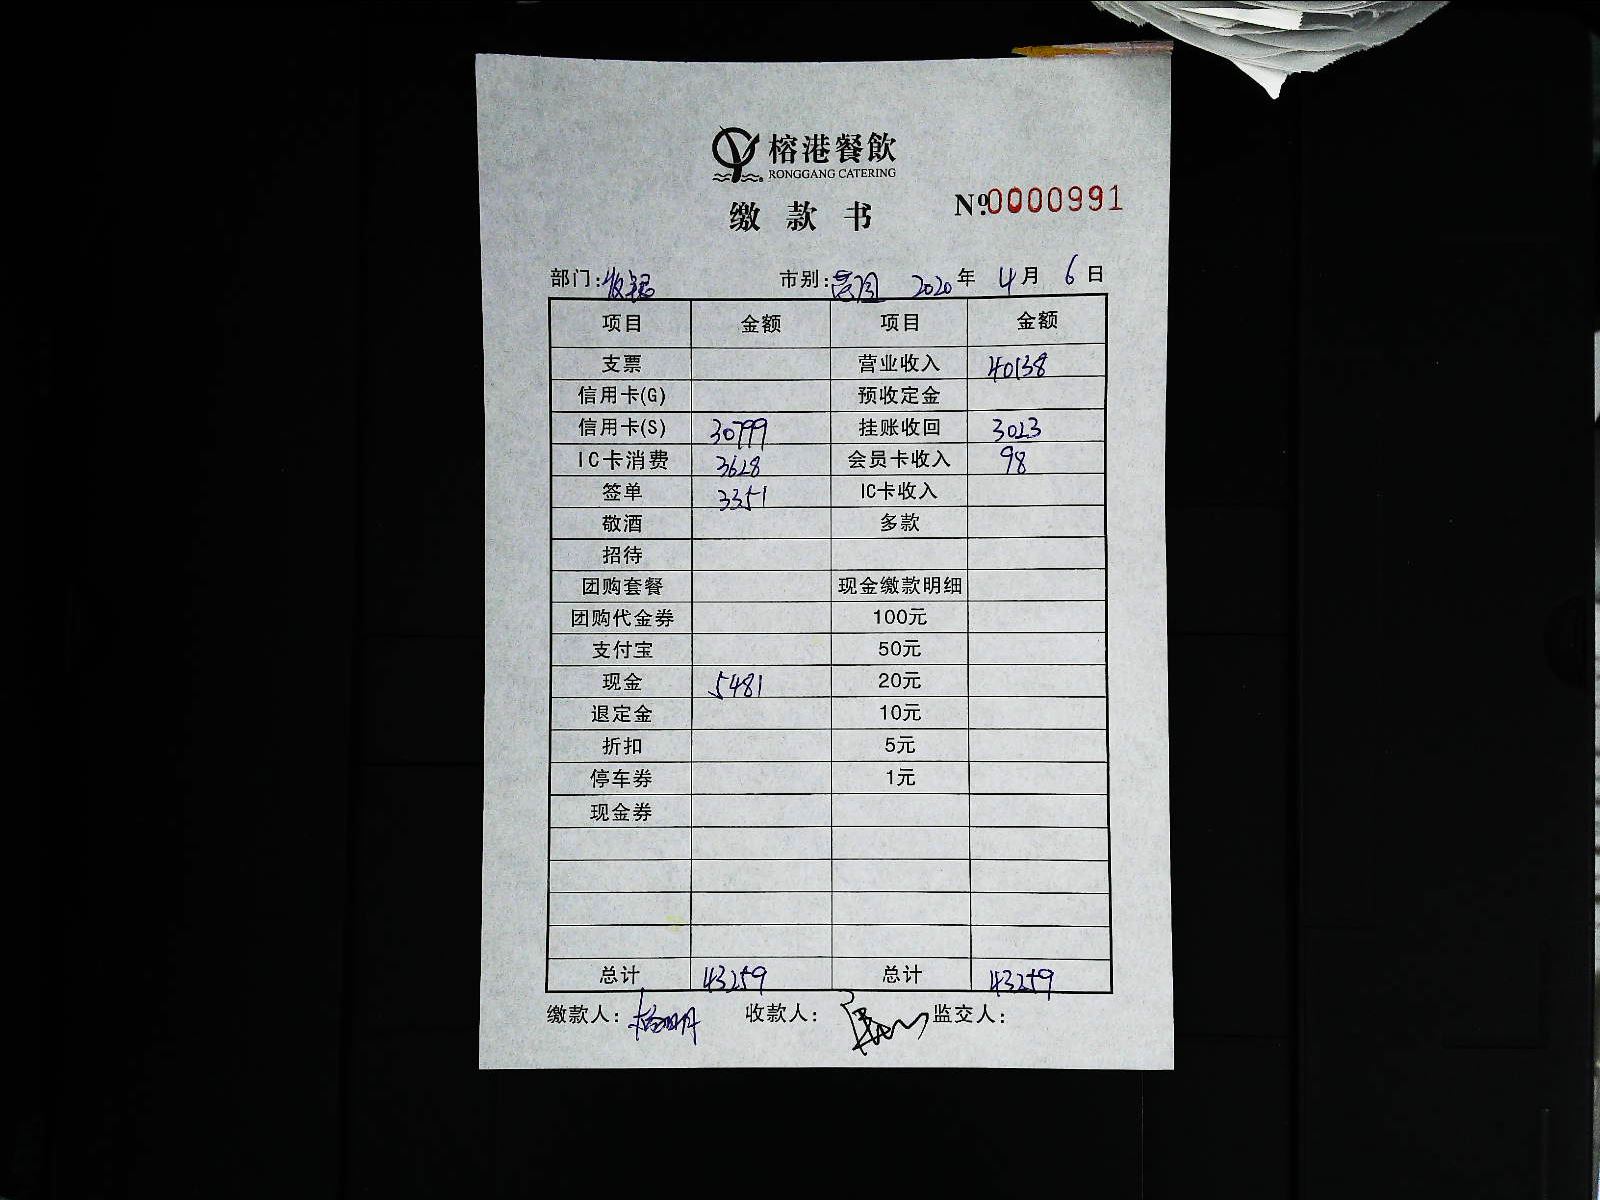 榕港餐飲
RONGGANG CATERING
缴款书
№0000991
部门:收银 市别: 2020年 4月 6日
项目 金额 项目 金额
支票 营业收入 40138
信用卡(G) 预收定金
信用卡(S) 30799 挂账收回 3023
IC卡消费 3628 会员卡收入 98
签单 3351 IC卡收入
敬酒 多款
招待
团购套餐 现金缴款明细
团购代金券 100元
支付宝 50元
现金 5481 20元
退定金 10元
折扣 5元
停车券 1元
现金券
总计 43259 总计 43259
缴款人: 收款人: 监交人: